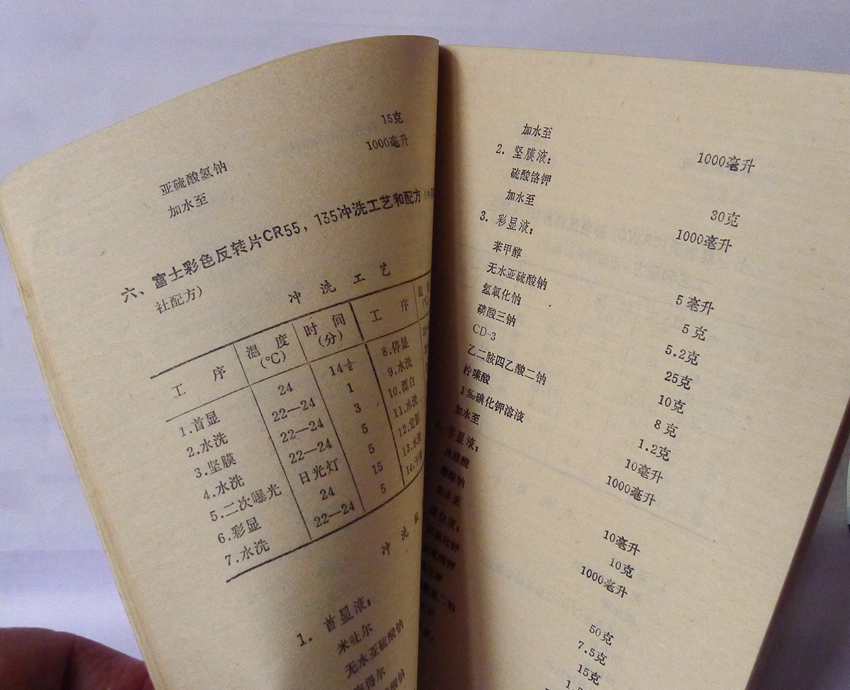 15克
亚硫酸氢钠 1000毫升
加水至
六、富士彩色反转片CR55，135冲洗工艺和配方
社配方）
冲洗工艺
工序 温度（℃） 时间（分） 工序
1.首显 24 14½ 8.停显
2.水洗 22—24 1 9.水洗
3.坚膜 22—24 3 10.漂白
4.水洗 22—24 5 11.水洗
5.二次曝光 日光灯 5 12.定影
6.彩显 24 15 13.水洗
7.水洗 22—24 5
冲洗
1. 首显液：
米吐尔
无水亚硫酸钠
加水至 1000毫升
2. 坚膜液：
硫酸铬钾 30克
加水至 1000毫升
3. 彩显液：
苯甲醇 5毫升
无水亚硫酸钠 5克
氢氧化钠 5.2克
磷酸三钠 25克
CD-3 10克
乙二胺四乙酸二钠 8克
柠嗪酸 1.2克
1‰碘化钾溶液 10毫升
加水至 1000毫升
10毫升
10克
加水至 1000毫升
50克
7.5克
15克